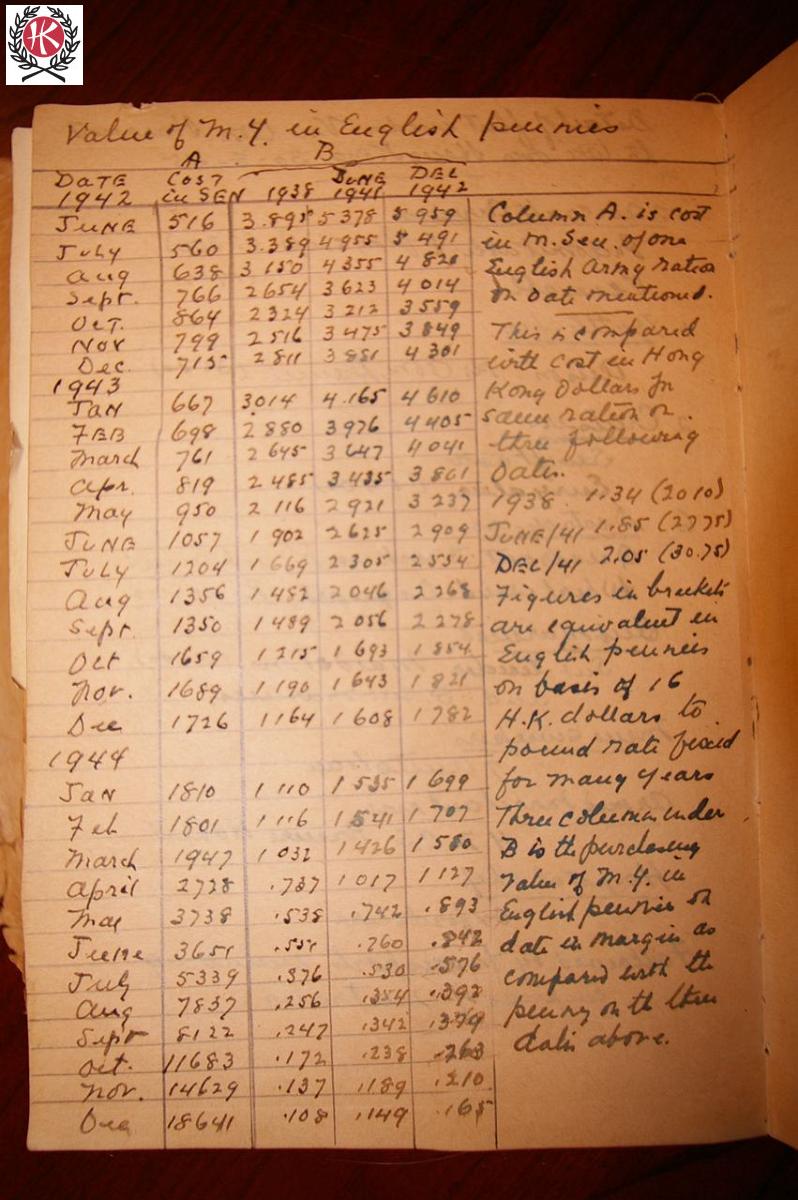 HK
Value of M.Y. in English pennies
A B
DATE COST JUNE DEC
1942 in SEN 1938 1941 1942
JUNE 516 3.895 5378 5959
July 560 3.389 4955 5491
Aug 638 3150 4355 4820
Sept. 766 2654 3623 4014
Oct. 864 2324 3212 3559
Nov 799 2516 3475 3849
Dec. 715 2811 3851 4301
1943
JAN 667 3014 4.165 4610
FEB 698 2880 3976 4405
March 761 2645 3647 4041
Apr. 819 2485 3435 3801
May 950 2116 2921 3237
JUNE 1057 1902 2625 2909
July 1204 1669 2305 2554
Aug 1356 1482 2046 2268
Sept. 1350 1489 2056 2278
Oct 1659 1215 1693 1854
Nov. 1689 1190 1643 1821
Dec 1726 1164 1608 1782
1944
JAN 1810 1110 1535 1699
Feb 1801 1116 1541 1707
March 1947 1032 1426 1580
April 2728 .737 1017 1127
Mae 3738 .538 .742 .893
June 3651 .551 .760 .842
July 5339 .376 .530 .576
Aug 7837 .256 .354 .392
Sept 8122 .247 .342 .379
Oct. 11683 .172 .238 .263
Nov. 14629 .137 .189 .210
Dec 18641 .108 .149 .165
Column A. is cost
in M. Sen. of one
English Army ration
on Date mentioned.
This is compared
with cost in Hong
Kong Dollars for
same ration on
three following
Dates.
1938 1.34 (2010)
JUNE/41 1.85 (2775)
DEC/41 2.05 (30.75)
Figures in brackets
are equivalent in
English pennies
on basis of 16
H.K. dollars to
pound rate fixed
for many years
Three columns under
B is the purchasing
value of M.Y. in
English pennies on
date in margin as
compared with the
penny on the three
dates above.